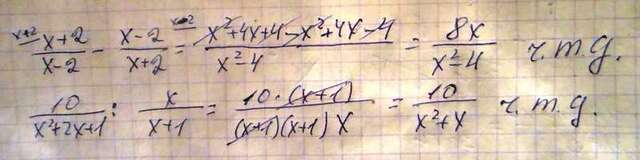 x+2 (x+2)/(x-2) - x-2 (x-2)/(x+2) = (x²+4x+4-x²+4x-4)/(x²-4) = 8x/(x²-4) ч.т.д.
10/(x²+2x+1) : x/(x+1) = 10·(x+1)/((x+1)(x+1)x) = 10/(x²+x) ч.т.д.